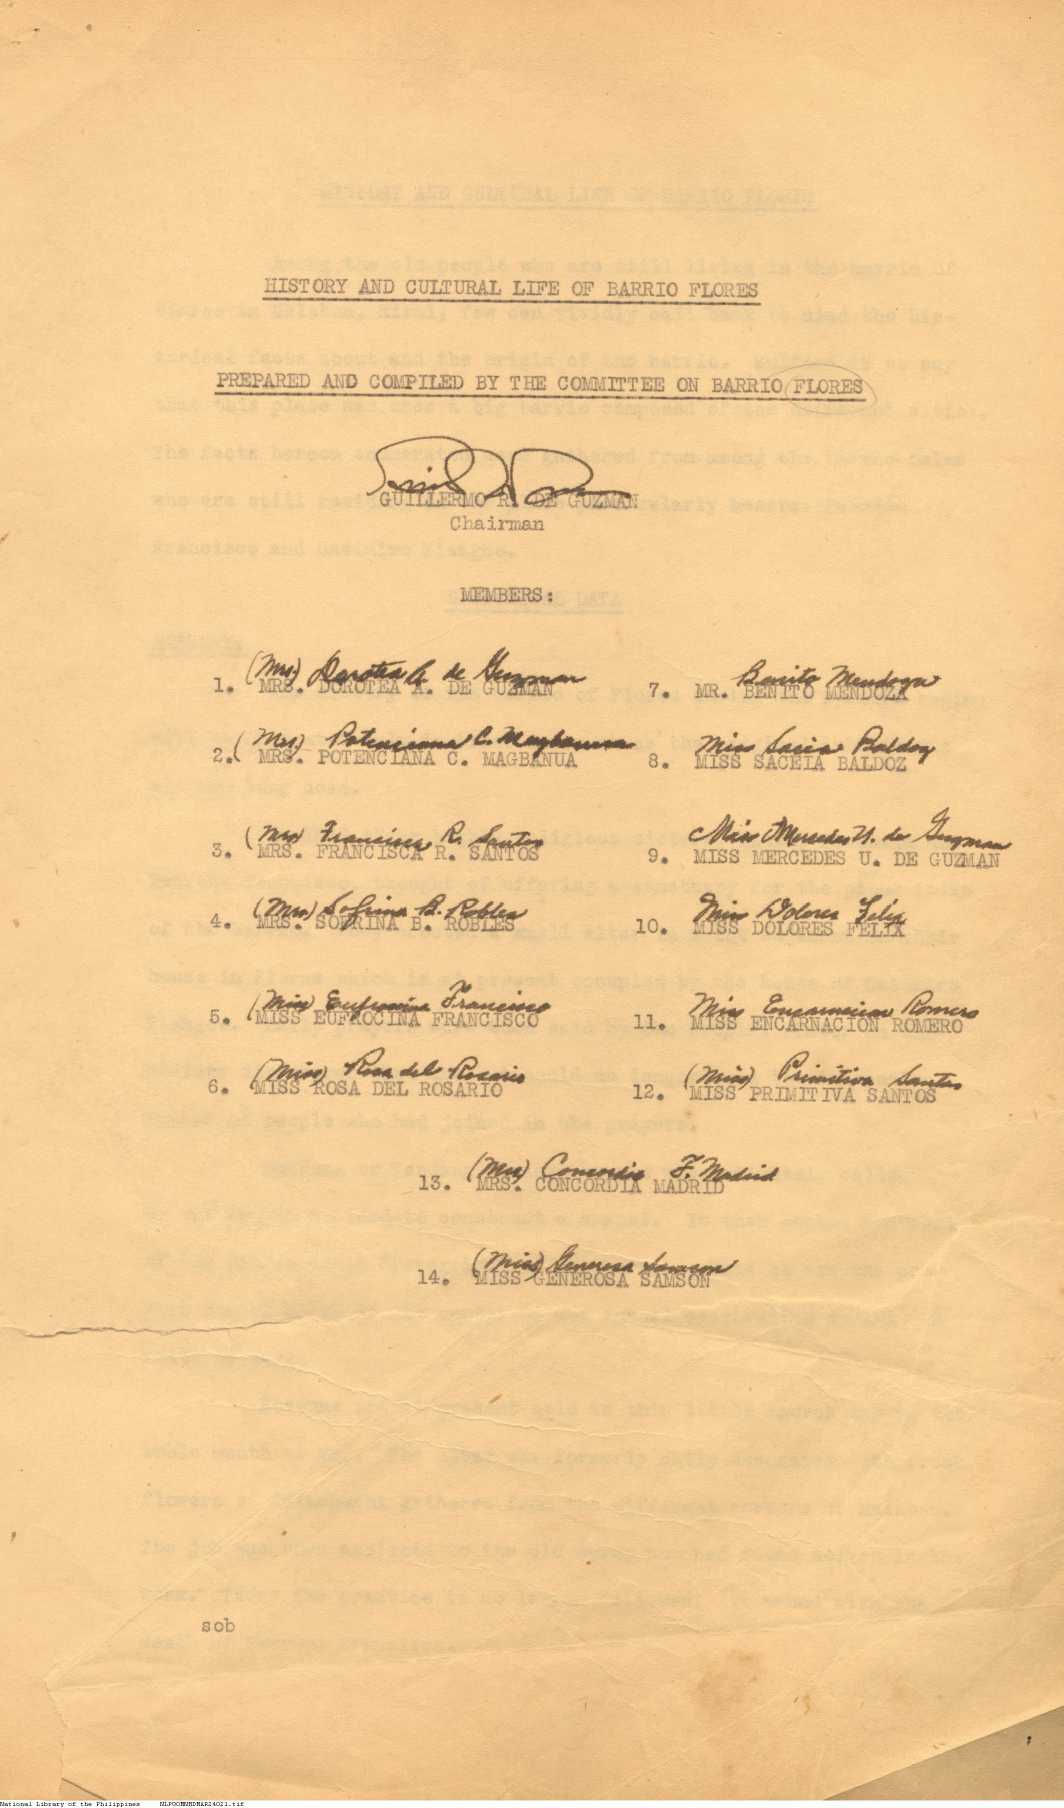 HISTORY AND CULTURAL LIFE OF BARRIO FLORES
PREPARED AND COMPILED BY THE COMMITTEE ON BARRIO FLORES
GUILLERMO R. DE GUZMAN
Chairman
MEMBERS:
(Mrs) Dorotea A. de Guzman
1. MRS. DOROTEA A. DE GUZMAN
(Mrs) Potenciana C. Magbanua
2. MRS. POTENCIANA C. MAGBANUA
(Mrs) Francisca R. Santos
3. MRS. FRANCISCA R. SANTOS
(Mrs) Sofrina B. Robles
4. MRS. SOFRINA B. ROBLES
(Miss) Eufrocina Francisco
5. MISS EUFROCINA FRANCISCO
(Miss) Rosa del Rosario
6. MISS ROSA DEL ROSARIO
Benito Mendoza
7. MR. BENITO MENDOZA
Miss Saceia Baldoz
8. MISS SACEIA BALDOZ
Miss Mercedes U. de Guzman
9. MISS MERCEDES U. DE GUZMAN
Miss Dolores Felix
10. MISS DOLORES FELIX
Miss Encarnacion Romero
11. MISS ENCARNACION ROMERO
(Miss) Primitiva Santos
12. MISS PRIMITIVA SANTOS
(Mrs) Concordia F. Madrid
13. MRS. CONCORDIA MADRID
(Miss) Generosa Samson
14. MISS GENEROSA SAMSON
sob
National Library of the Philippines NLPOOMNHDMAR24021.tif